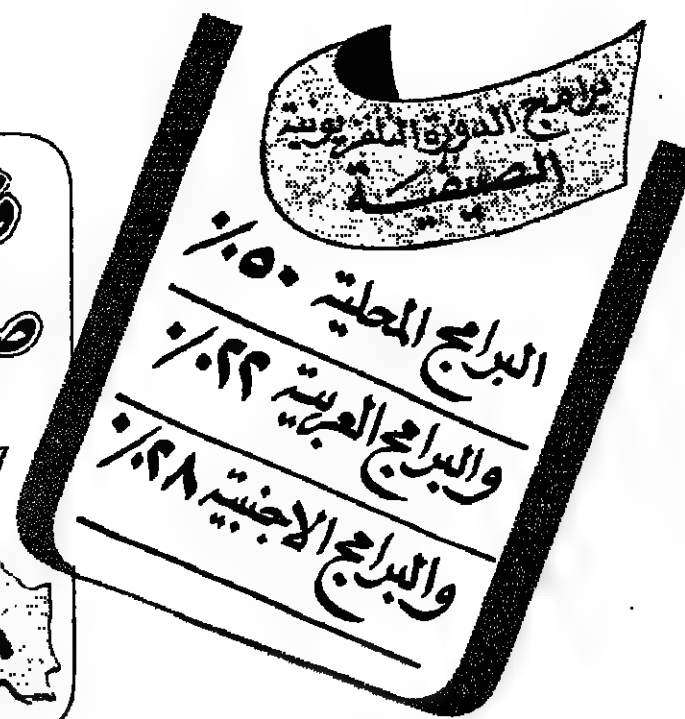 برامج الدورة التلفزيونية
الصيفية
البرامج المحلية ٥٠٪
والبرامج العربية ٢٢٪
والبرامج الاجنبية ٢٨٪